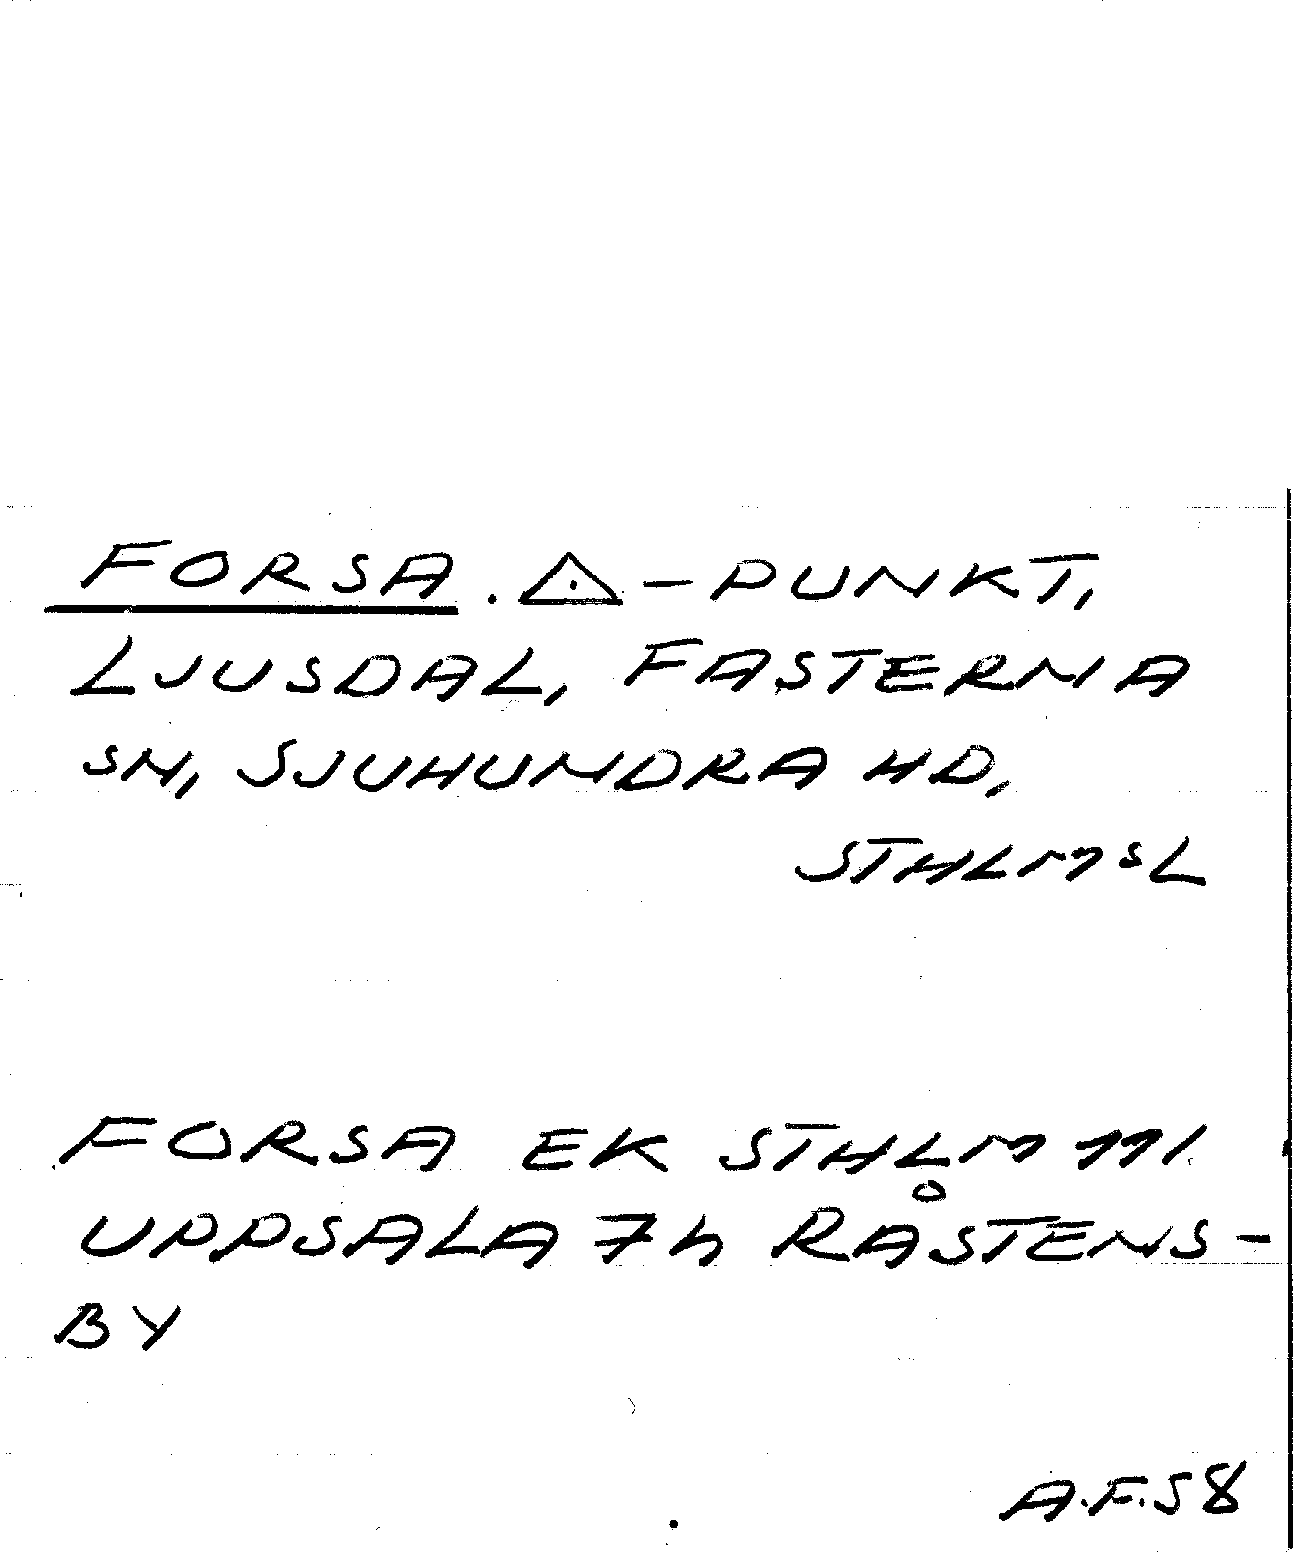 FORSA. △-PUNKT,
LJUSDAL, FASTERNA
SN, SJUHUNDRA HD,
STHLMSL
FORSA EK STHLM 111
UPPSALA 7h RÅSTENS-
BY
A.F.58